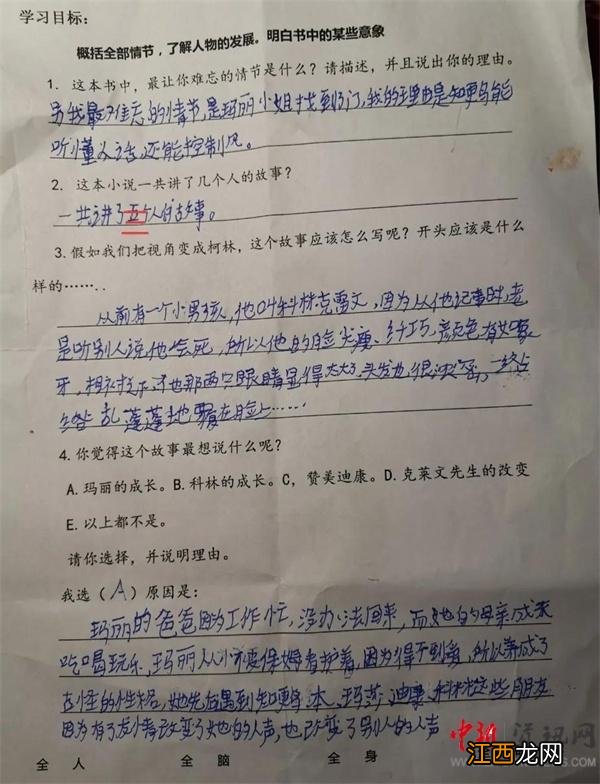 学习目标：
概括全部情节，了解人物的发展。明白书中的某些意象
1. 这本书中，最让你难忘的情节是什么？请描述，并且说出你的理由。
另我最难忘的情节，是玛丽小姐找到门，我的理由是知更鸟能
听懂人话，还能控制风。
2. 这本小说一共讲了几个人的故事？
一共讲了五个人的故事。
3. 假如我们把视角变成柯林，这个故事应该怎么写呢？开头应该是什么
样的……..
从前有一个小男孩，他叫科林克雷文，因为从他记事时，老
是听别人说他会死，所以他的脸尖瘦、纤巧，颜色有如象
牙，相衬托下他那两只眼睛显得太大了，头发也很浓密，一绺
绺乱蓬蓬地覆在脸上……
4. 你觉得这个故事最想说什么呢？
A. 玛丽的成长。B. 科林的成长。C，赞美迪康。D. 克莱文先生的改变
E. 以上都不是。
请你选择，并说明理由。
我选（A）原因是：
玛丽的爸爸因为工作忙，没办法回来，而她的母亲成天
吃喝玩乐，玛丽从小就被保姆看护着，因为得不到爱，所以养成了
古怪的性格，她先后遇到知更鸟、本、玛莎、迪康、科林这些朋友
因为有了友情改变了她的人声，也改变了别人的人声
全人 全脑 全身
中新
江西龙网